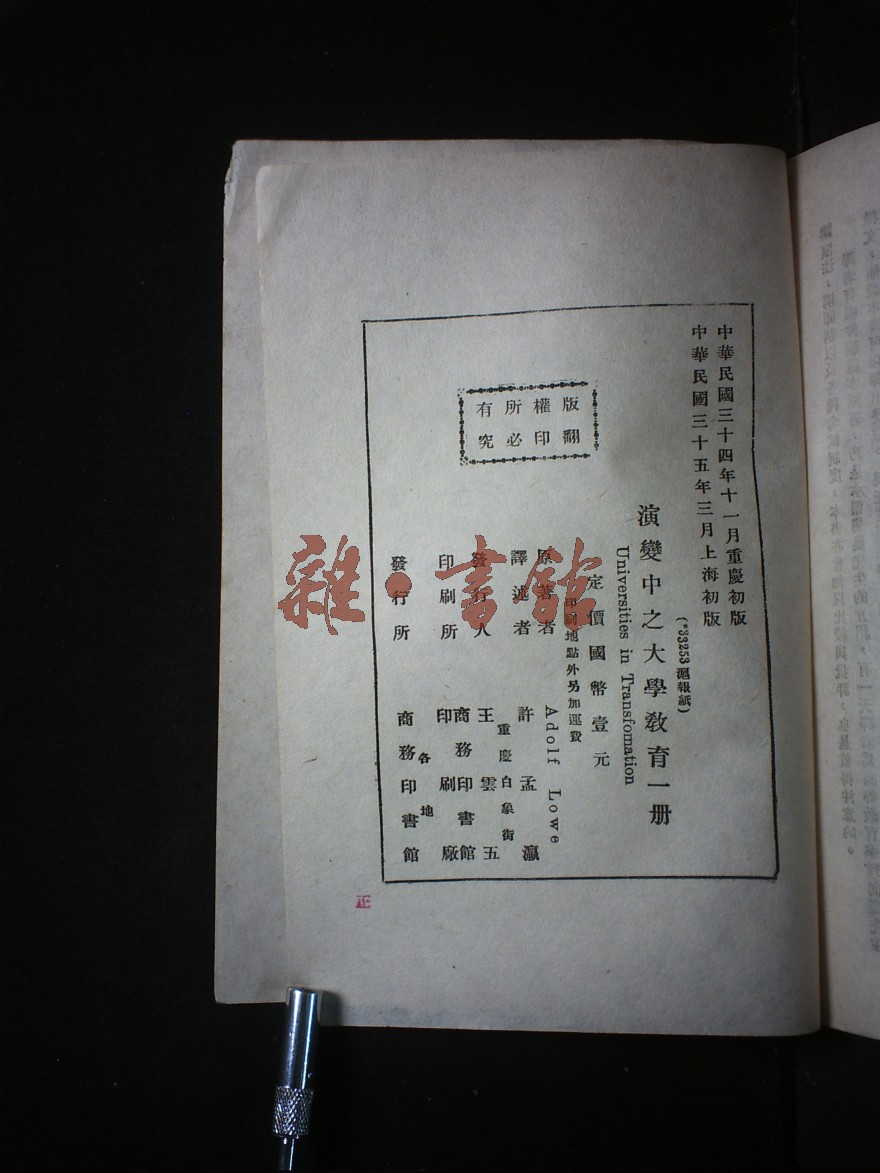 中華民國三十四年十一月重慶初版
中華民國三十五年三月上海初版
(*33253滬報紙)
演變中之大學教育一册
Universities in Transfomation
定價國幣壹元
印刷地點外另加運費
版權所有
翻印必究
原著者 Adolf Lowe
譯述者 許孟瀛
發行人 王雲五
重慶白象街
印刷所 商務印書館
印刷廠
發行所 各地
商務印書館
雜·書館
正